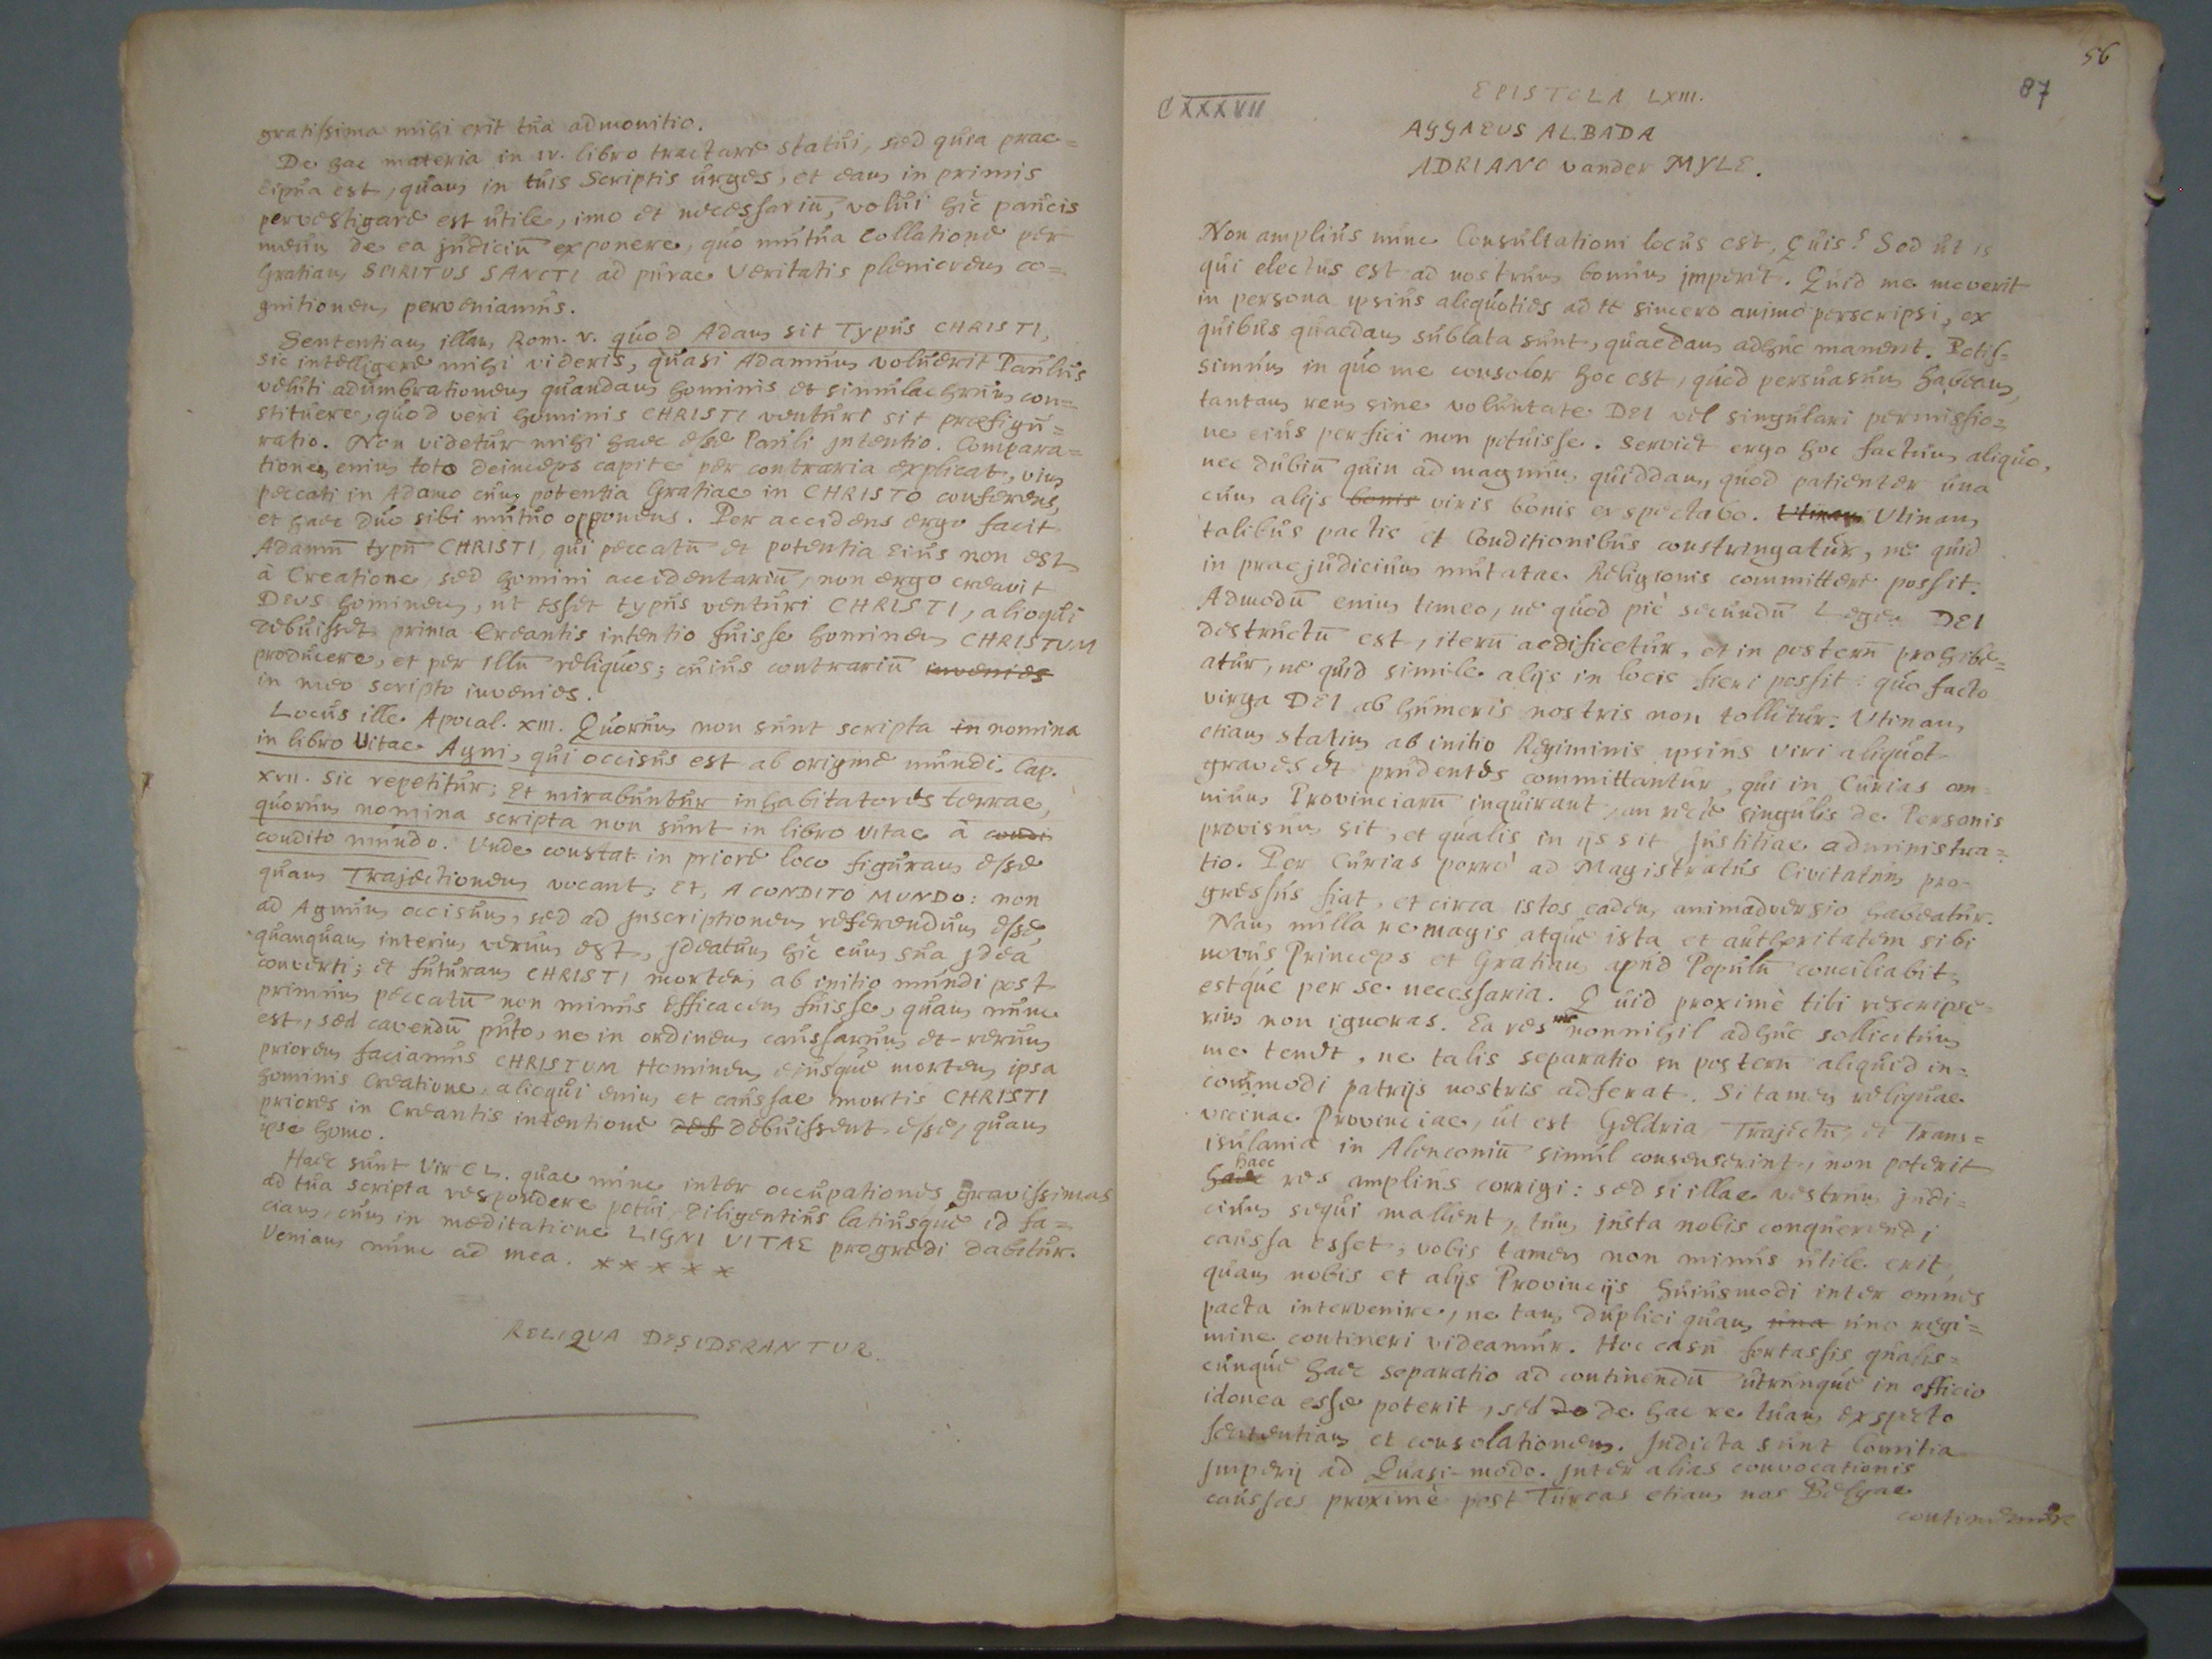 gratissima mihi erit tua admonitio.
De hac materia in IV. libro tractare statui, sed quia prae=
cipua est, quam in tuis Scriptis urges, et eam in primis
pervestigare est utile, imo et necessariū, volui hic paucis
meum de ea judiciū exponere, quo mutua Collatione per
Gratiam SPIRITUS SANCTI ad purae Veritatis pleniorem co=
gnitionem perveniamus.
Sententiam illam Rom. V. quod Adam sit Typus CHRISTI,
sic intelligere mihi videris, quasi Adamum voluerit Paulus
veluti adumbrationem quandam hominis et simulachrum con=
stituere, quod veri hominis CHRISTI venturi sit praefigu=
ratio. Non videtur mihi haec esse Pauli Intentio. Compara=
tionem enim toto deinceps capite per contraria explicat, vim
peccati in Adamo cum potentia Gratiae in CHRISTO conferens,
et haec duo sibi mutuo opponens. Per accidens ergo facit
Adamū typū CHRISTI, qui peccatū et potentia eius non est
à Creatione, sed homini accidentariū, non ergo creavit
DEUS hominem, ut esset typus venturi CHRISTI, alioqui
debuisset prima Creantis intentio fuisse hominem CHRISTUM
producere, et per illū reliquos; cuius contrariū invenies
in meo scripto invenies.
Locus ille Apocal. XIII. Quorum non sunt scripta in nomina
in libro Vitae Agni, qui occisus est ab origine mundi. Cap.
XVII. sic repetitur; Et mirabuntur inhabitatores terrae,
quorum nomina scripta non sunt in libro Vitae à condi
condito mundo. Unde constat in priore loco figuram esse
quam Trajectionem vocant; et, A CONDITO MUNDO: non
ad Agnum occisum, sed ad Inscriptionem referendum esse,
quanquam interim verum est, Ideatum hic cum sua Idea
converti; et futuram CHRISTI mortem ab initio mundi post
primum peccatū non minus efficacem fuisse, quam nunc
est, sed cavendū puto, ne in ordinem caussarum et rerum
priorem faciamus CHRISTUM Hominem ejusque mortem ipsa
hominis Creatione, alioqui enim et caussae mortis CHRISTI
priores in Creantis intentione deb debuissent esse, quam
ipse homo.
Haec sunt Vir CL. quae nunc inter occupationes gravissimas
ad tua scripta respondere potui, Diligentius latiusque id fa=
ciam, cum in meditatione LIGNI VITAE progredi dabitur.
Veniam nunc ad mea. x x x x x
RELIQUA DESIDERANTUR.
56
87
CXXXVII
EPISTOLA LXIII.
AGGAEUS ALBADA
ADRIANO vander MYLE.
Non amplius nunc Consultationi locus est, Quis? Sed ut is
qui electus est ad nostrum bonum imperit. Quid me moverit
in persona ipsius aliquoties ad te sincero animo perscripsi, ex
quibus quaedam sublata sunt, quaedam adhuc manent. Potis=
simum in quo me consolor hoc est, quod persuasum habeam,
tantam rem sine voluntate DEI vel singulari permissio=
ne eius perfici non potuisse. Serviet ergo hoc factum aliquo,
nec dubiū quin ad magnum quiddam, quod patienter una
cum alijs bonis viris bonis exspectabo. Utinam Utinam
talibus pactis et Conditionibus constringatur, ne quid
in praejudicium mutatae Religionis committere possit.
Admodū enim timeo, ne quod piè secundū Legem DEI
destructū est, iterū aedificetur, et in posterū prohibe=
atur, ne quid simile alijs in locis fieri possit: quo facto
virga DEI ab humeris nostris non tollitur. Utinam
etiam statim ab initio Regiminis ipsius viri aliquot
graves et prudentes committantur, qui in Curias om=
nium Provinciarū inquirant, an recte singulis de Personis
provisum sit, et qualis in ijs sit Justitiae administra=
tio. Per Curias porrò ad Magistratus Civitatum pro=
gressus fiat, et circa istos eadem animadversio habeatur.
Nam nulla re magis atque ista et authoritatem sibi
novus Princeps et Gratiam apud Populū conciliabit,
estque per se necessaria. Quid proximè tibi rescripse=
rim non ignoras. Ea res nonnihil adhuc sollicitum
me tenet, ne talis separatio in posterū aliquid in=
commodi patrijs nostris adferat. Si tamen reliquae
vicinae Provinciae, ut est Geldria, Trajectū, et Trans=
isulania in Alenconiū simul consenserint, non poterit
haec
haec res amplius corrigi: sed si illae vestrum judi=
cium sequi mallent, tum justa nobis conquerendi
caussa esset, vobis tamen non minus utile erit,
quam nobis et alijs Provincijs huiusmodi inter omnes
pacta intervenire, ne tam duplici quam una uno regi=
mine contineri videamur. Hoc casu fortassis qualis=
cunque haec separatio ad continendū utrunque in officio
idonea esse poterit, sed de de hac re tuam exspecto
sententiam et consolationem. Indicta sunt Comitia
Imperij ad Quasi-modo. Inter alias convocationis
caussas proximè post Turcas etiam nos Belgae
continemur